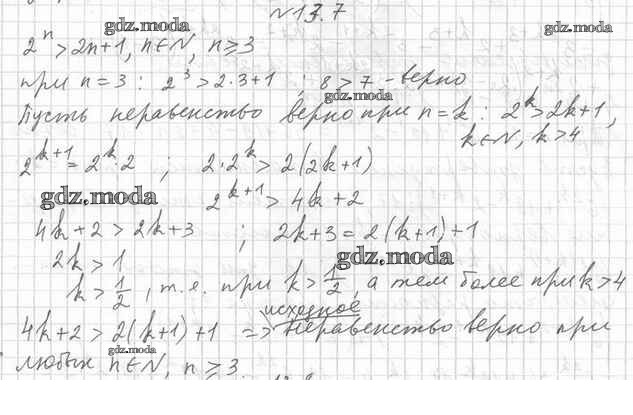 №13.7
gdz.moda
gdz.moda
2ⁿ > 2n+1, n∈N, n ⩾ 3
при n=3 : 2³ > 2·3+1 ; 8 > 7 - верно
gdz.moda
Пусть неравенство верно при n=k : 2ᵏ > 2k+1,
k∈N, k>4
2ᵏ⁺¹ = 2ᵏ·2 ; 2·2ᵏ > 2(2k+1)
gdz.moda
2ᵏ⁺¹ > 4k+2
4k+2 > 2k+3 ; 2k+3 = 2(k+1)+1
gdz.moda
2k > 1
k > 1/2, т.е. при k > 1/2, а тем более при k>4
исходное
4k+2 > 2(k+1)+1 => неравенство верно при
gdz.moda
любых n∈N, n ⩾ 3